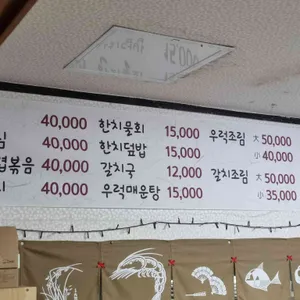 40,000 한치물회 15,000 우럭조림 大 50,000
심 40,000 한치덮밥 15,000 小 40,000
볶음 40,000 갈치국 12,000 갈치조림 大 50,000
40,000 우럭매운탕 15,000 小 35,000